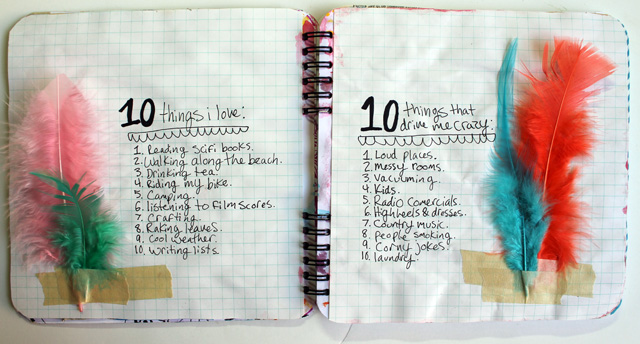 10 things i love:
1. Reading scifi books.
2. Walking along the beach.
3. Drinking tea.
4. Riding my bike.
5. Camping.
6. listening to film scores.
7. Crafting.
8. Raking leaves.
9. Cool weather.
10. Writing lists.
10 things that
drive me crazy:
1. Loud places.
2. messy rooms.
3. Vacuuming.
4. Kids.
5. Radio Comercials.
6. High heels & dresses.
7. Country music.
8. people smoking.
9. Corny jokes.
10. laundry.